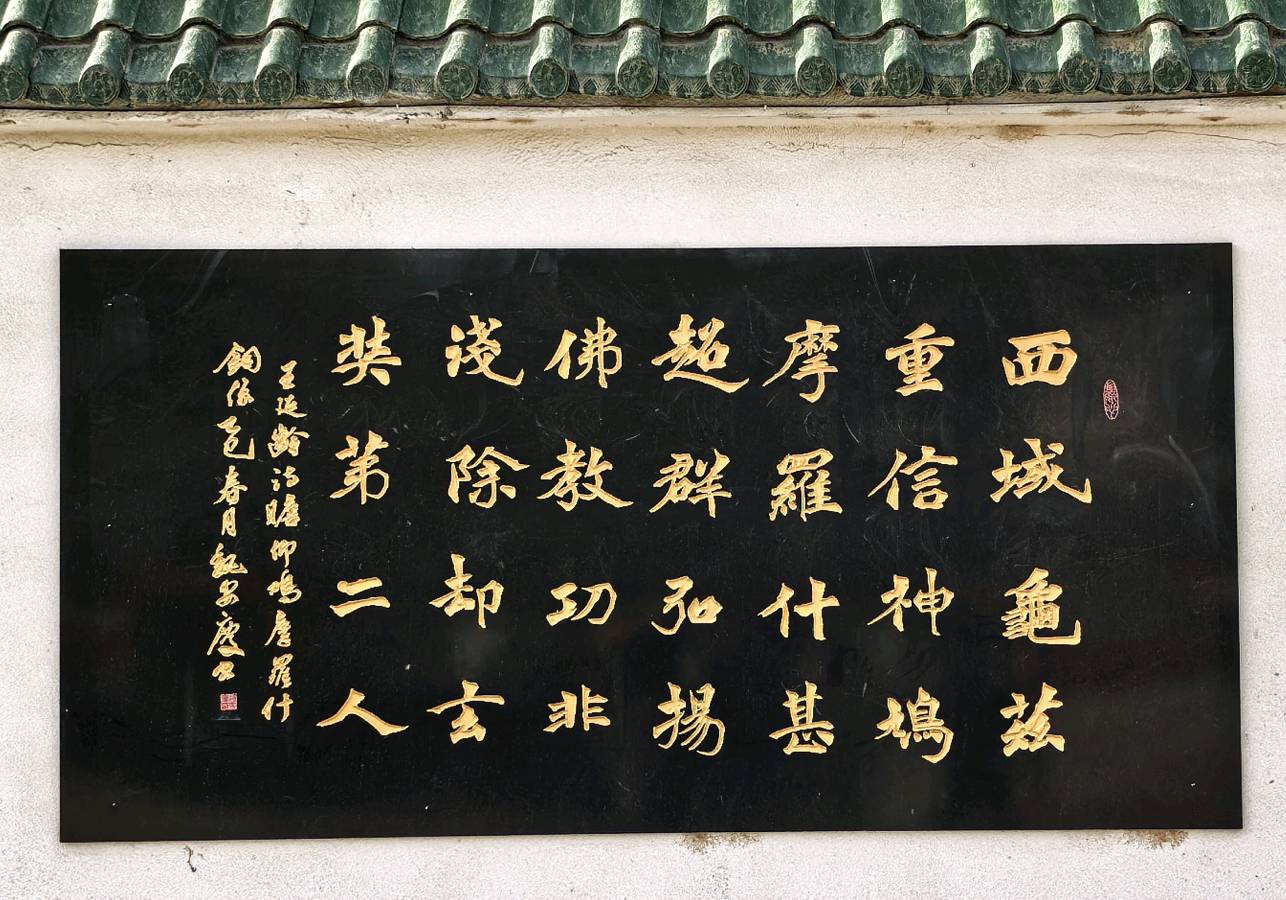 西域龜茲
重信神鳩
摩羅什甚
超群弘揚
佛教功非
淺除却玄
奘第二人
王延齡詩瞻仰鳩摩羅什
銅像乙巳春月魏安慶书